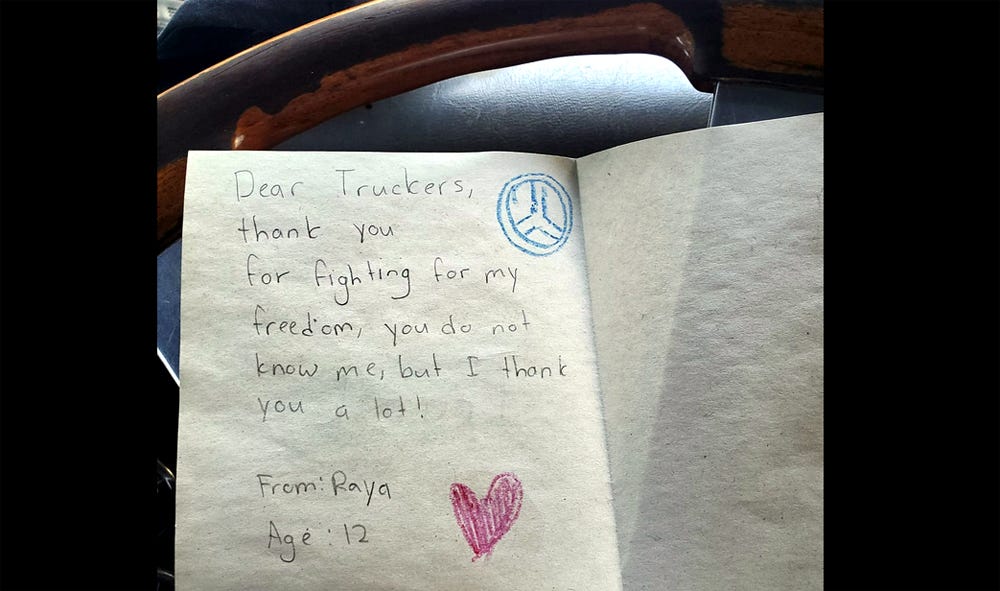 Dear Truckers,
thank you
for fighting for my
freedom, you do not
know me, but I thank
you a lot!
From: Raya
Age: 12